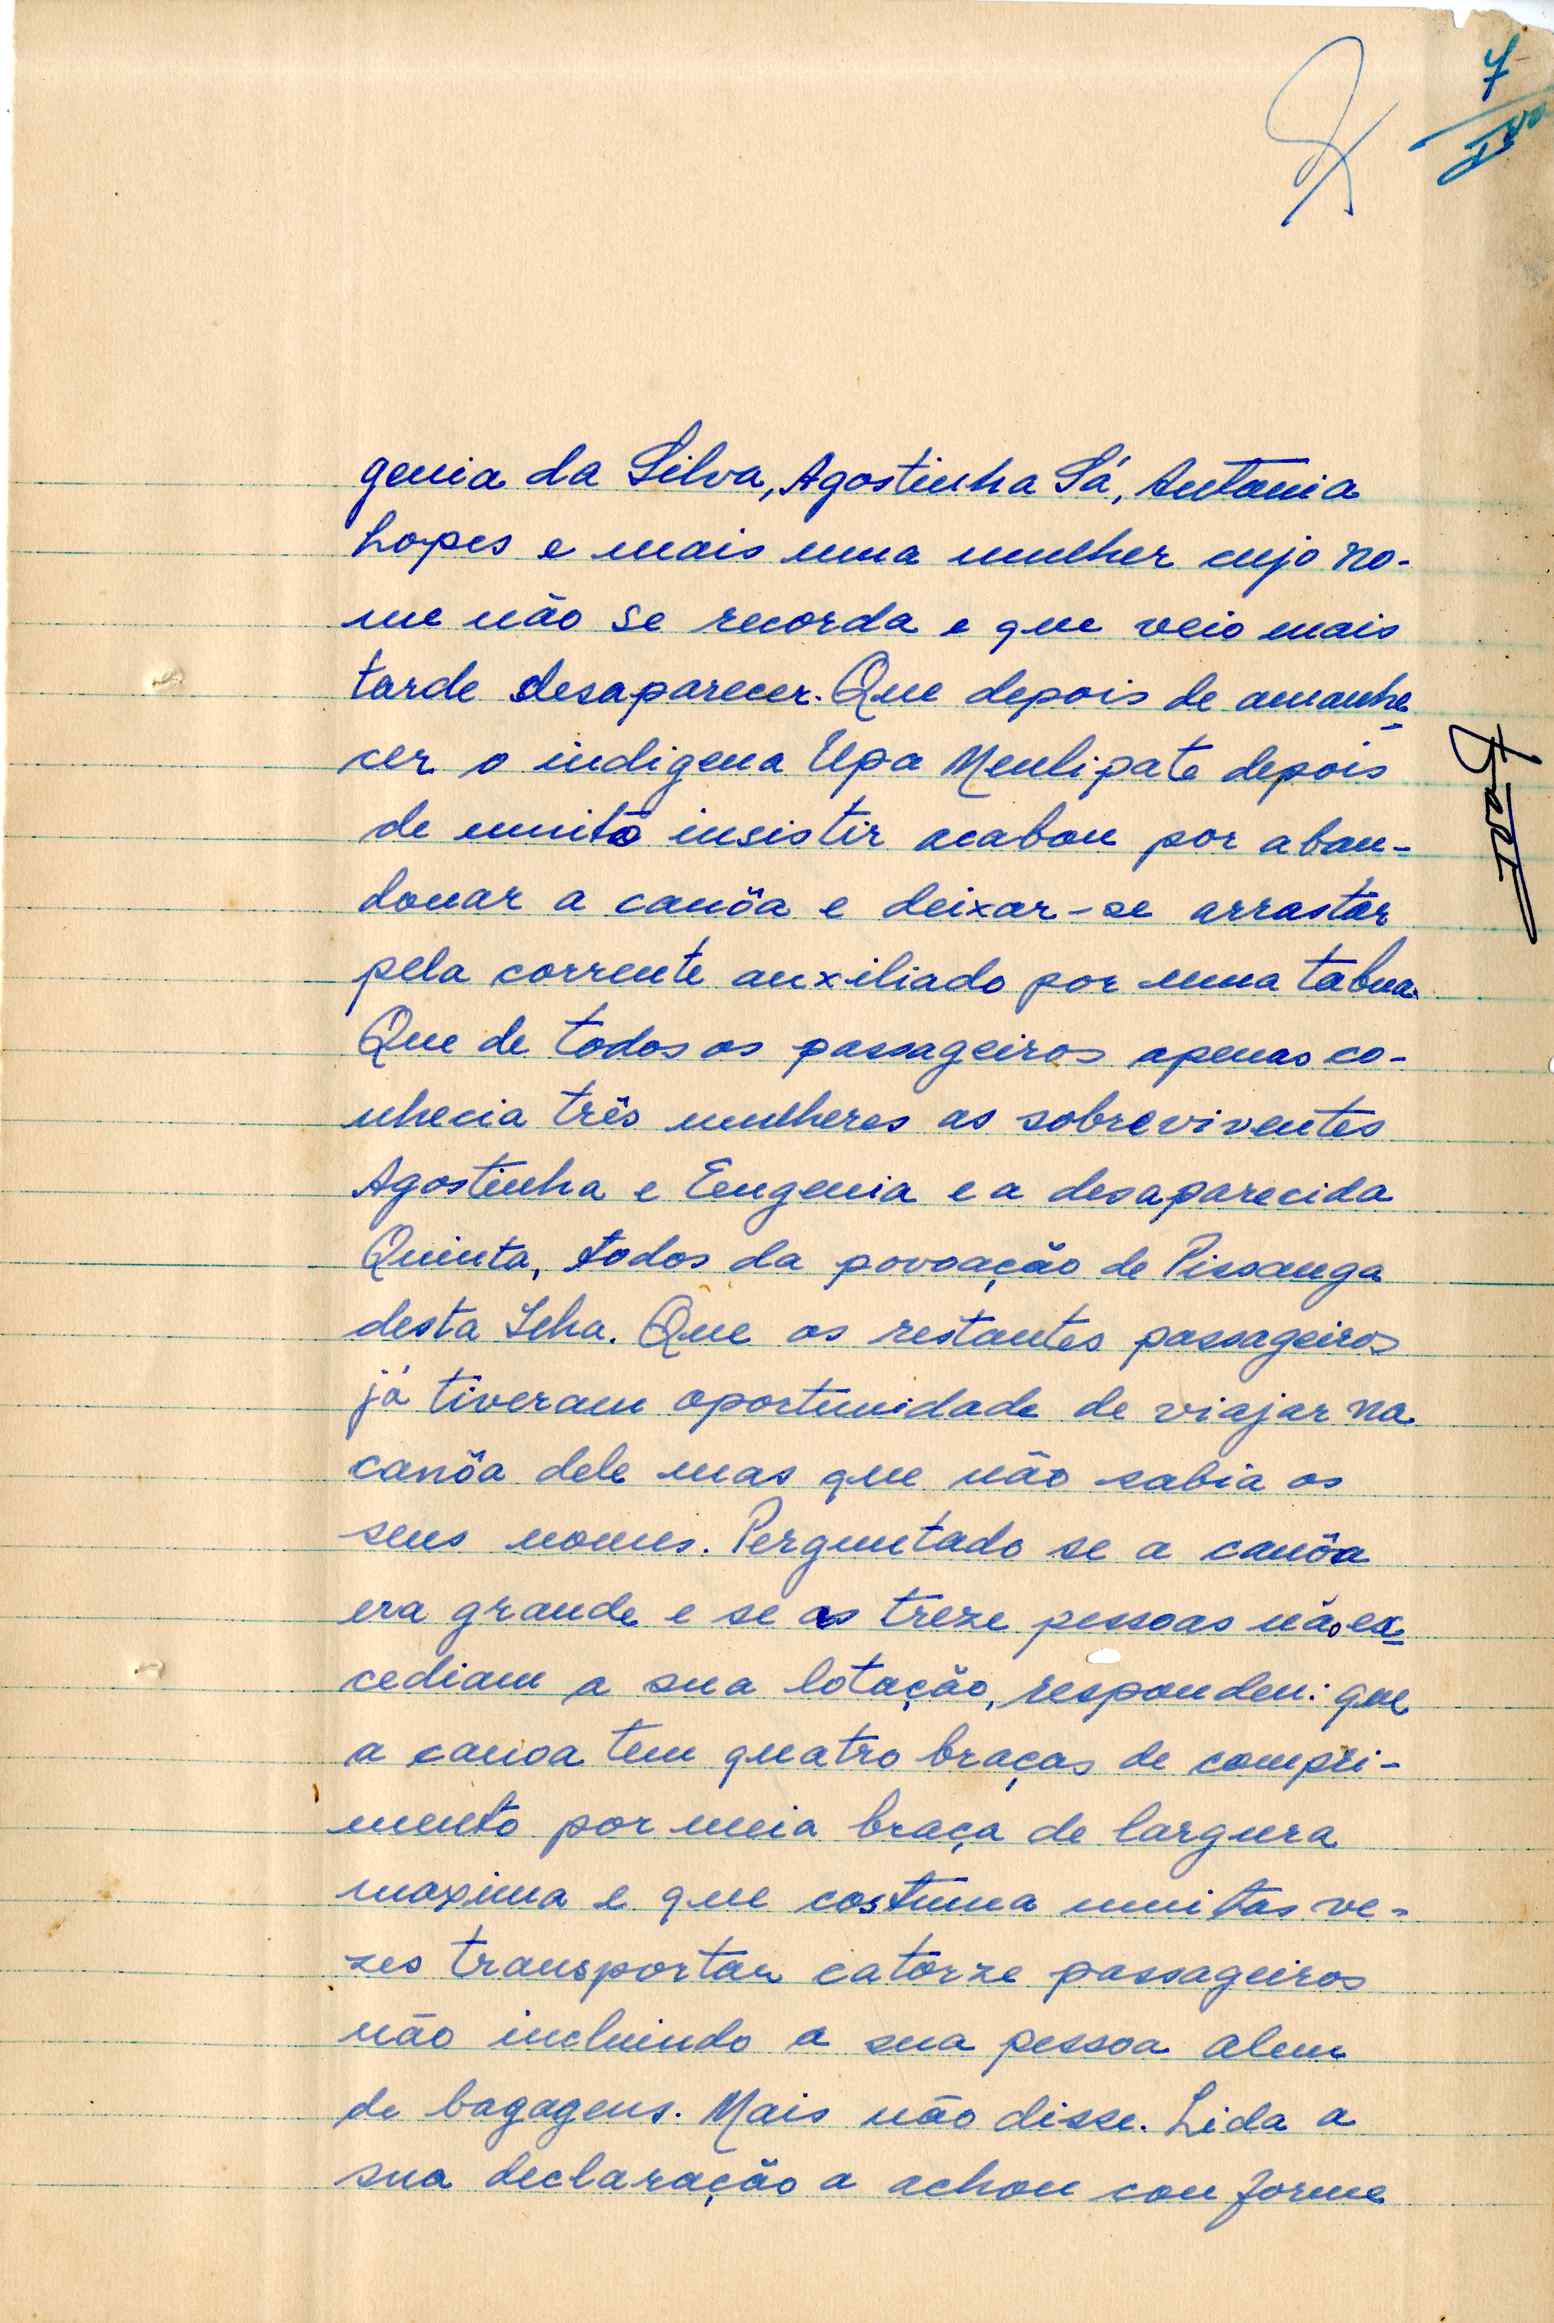 7
genia da Silva, Agostinha Sá, Antonia
Lopes e mais uma mulher cujo no-
me não se recorda e que veio mais
tarde desaparecer. Que depois de amanhe
cer o indigena Upa Menlipate depois
de muito insistir acabou por aban-
donar a canôa e deixar-se arrastar
pela corrente auxiliado por uma tabua.
Que de todos os passageiros apenas co-
nhecia três mulheres as sobreviventes
Agostinha e Eugenia e a desaparecida
Quinta, todos da povoação de Pissanga
desta Ilha. Que os restantes passageiros
já tiveram oportunidade de viajar na
canôa dele mas que não sabia os
seus nomes. Perguntado se a canôa
era grande e se as treze pessoas não ex-
cediam a sua lotação, respondeu: que
a canoa tem quatro braças de compri-
mento por meia braça de largura
maxima e que costuma muitas ve-
zes transportar catorze passageiros
não incluindo a sua pessoa alem
de bagagens. Mais não disse. Lida a
sua declaração a achou conforme